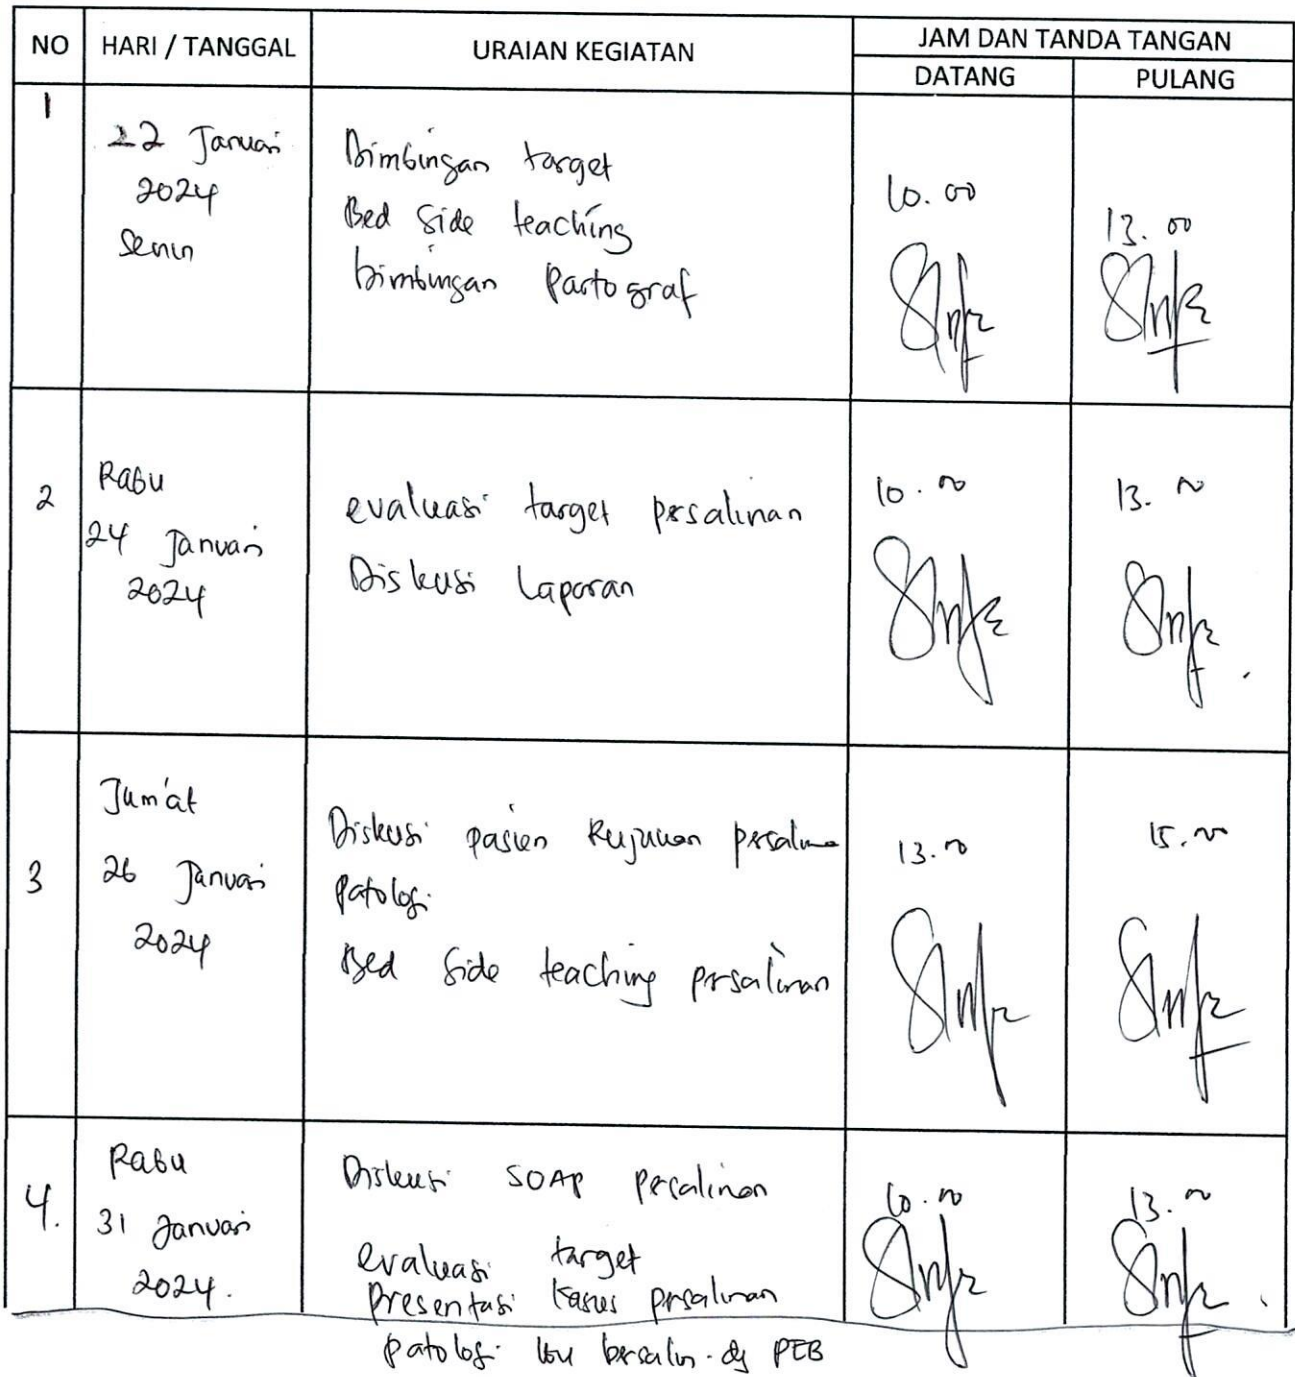 NO HARI / TANGGAL URAIAN KEGIATAN JAM DAN TANDA TANGAN
DATANG PULANG
1
22 Januari
2024
Senin
Bimbingan target
Bed Side teaching
bimbingan Partograf
10.00
13.00
2
Rabu
24 Januari
2024
evaluasi target persalinan
Diskusi Laporan
10.00
13.00
3
Jum'at
26 Januari
2024
Diskusi pasien Rujukan
patologi
Bed Side teaching persalinan
13.00
15.00
4.
Rabu
31 Januari
2024.
Diskusi SOAP persalinan
evaluasi target
Presentasi kasus persalinan
patologi ibu bersalin dg PEB
10.00
13.00